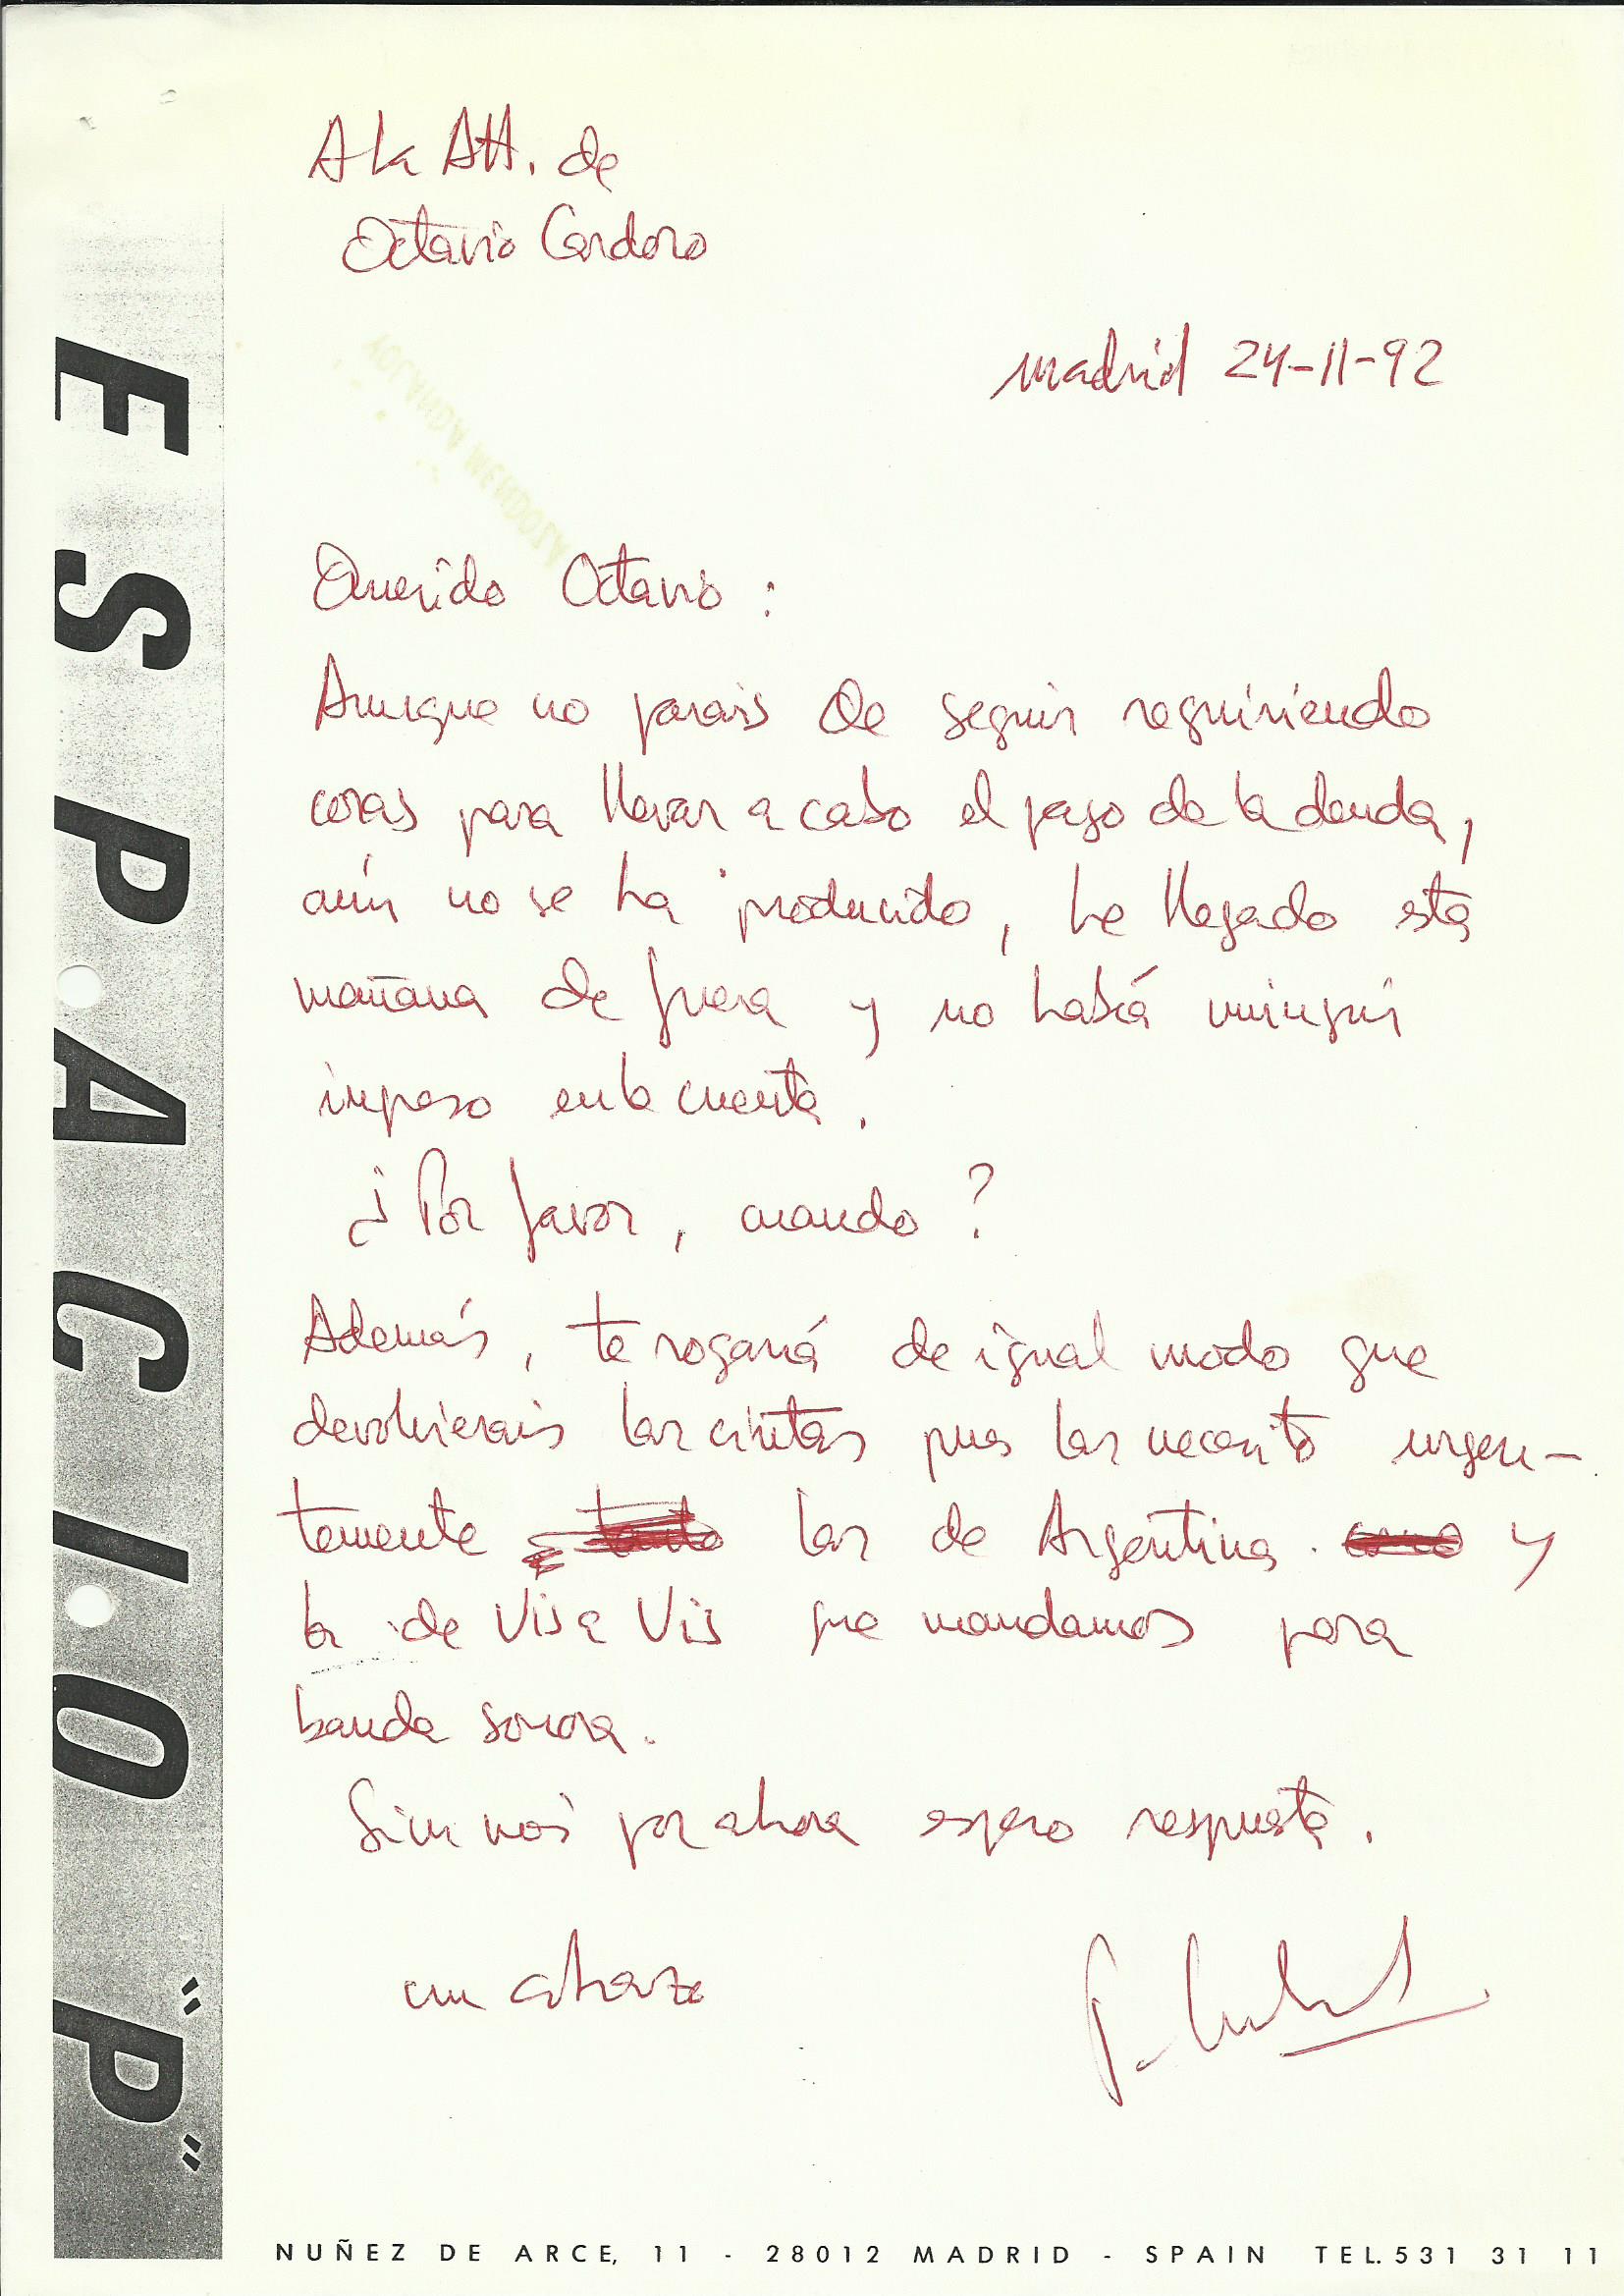 A la Att. de
Octavio Cardoso
Madrid 24-11-92
YOLANDA MENDOZA
Querido Octavio :
Aunque no parais de seguir requiriendo
cosas para llevar a cabo el pago de la deuda,
aún no se ha producido, he llegado esta
mañana de fuera y no había ningún
ingreso en la cuenta.
¿Por favor, cuando?
Además, te rogaría de igual modo que
devolvierais las cintas pues las necesito urgen-
temente las de Argentina. y
la de Vis a Vis que mandamos para
banda sonora.
Sin más por ahora espero respuesta.
un abrazo
ESPACIO "P"
NUÑEZ DE ARCE, 11 - 28012 MADRID - SPAIN TEL. 531 31 11